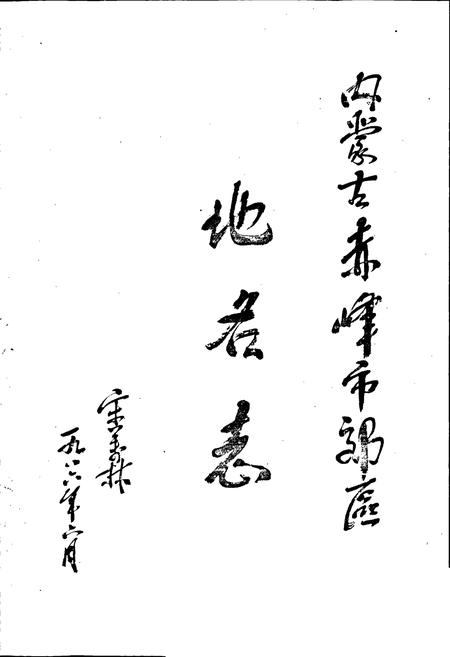 内蒙古赤峰市郊區
地名志
一九八六年二月